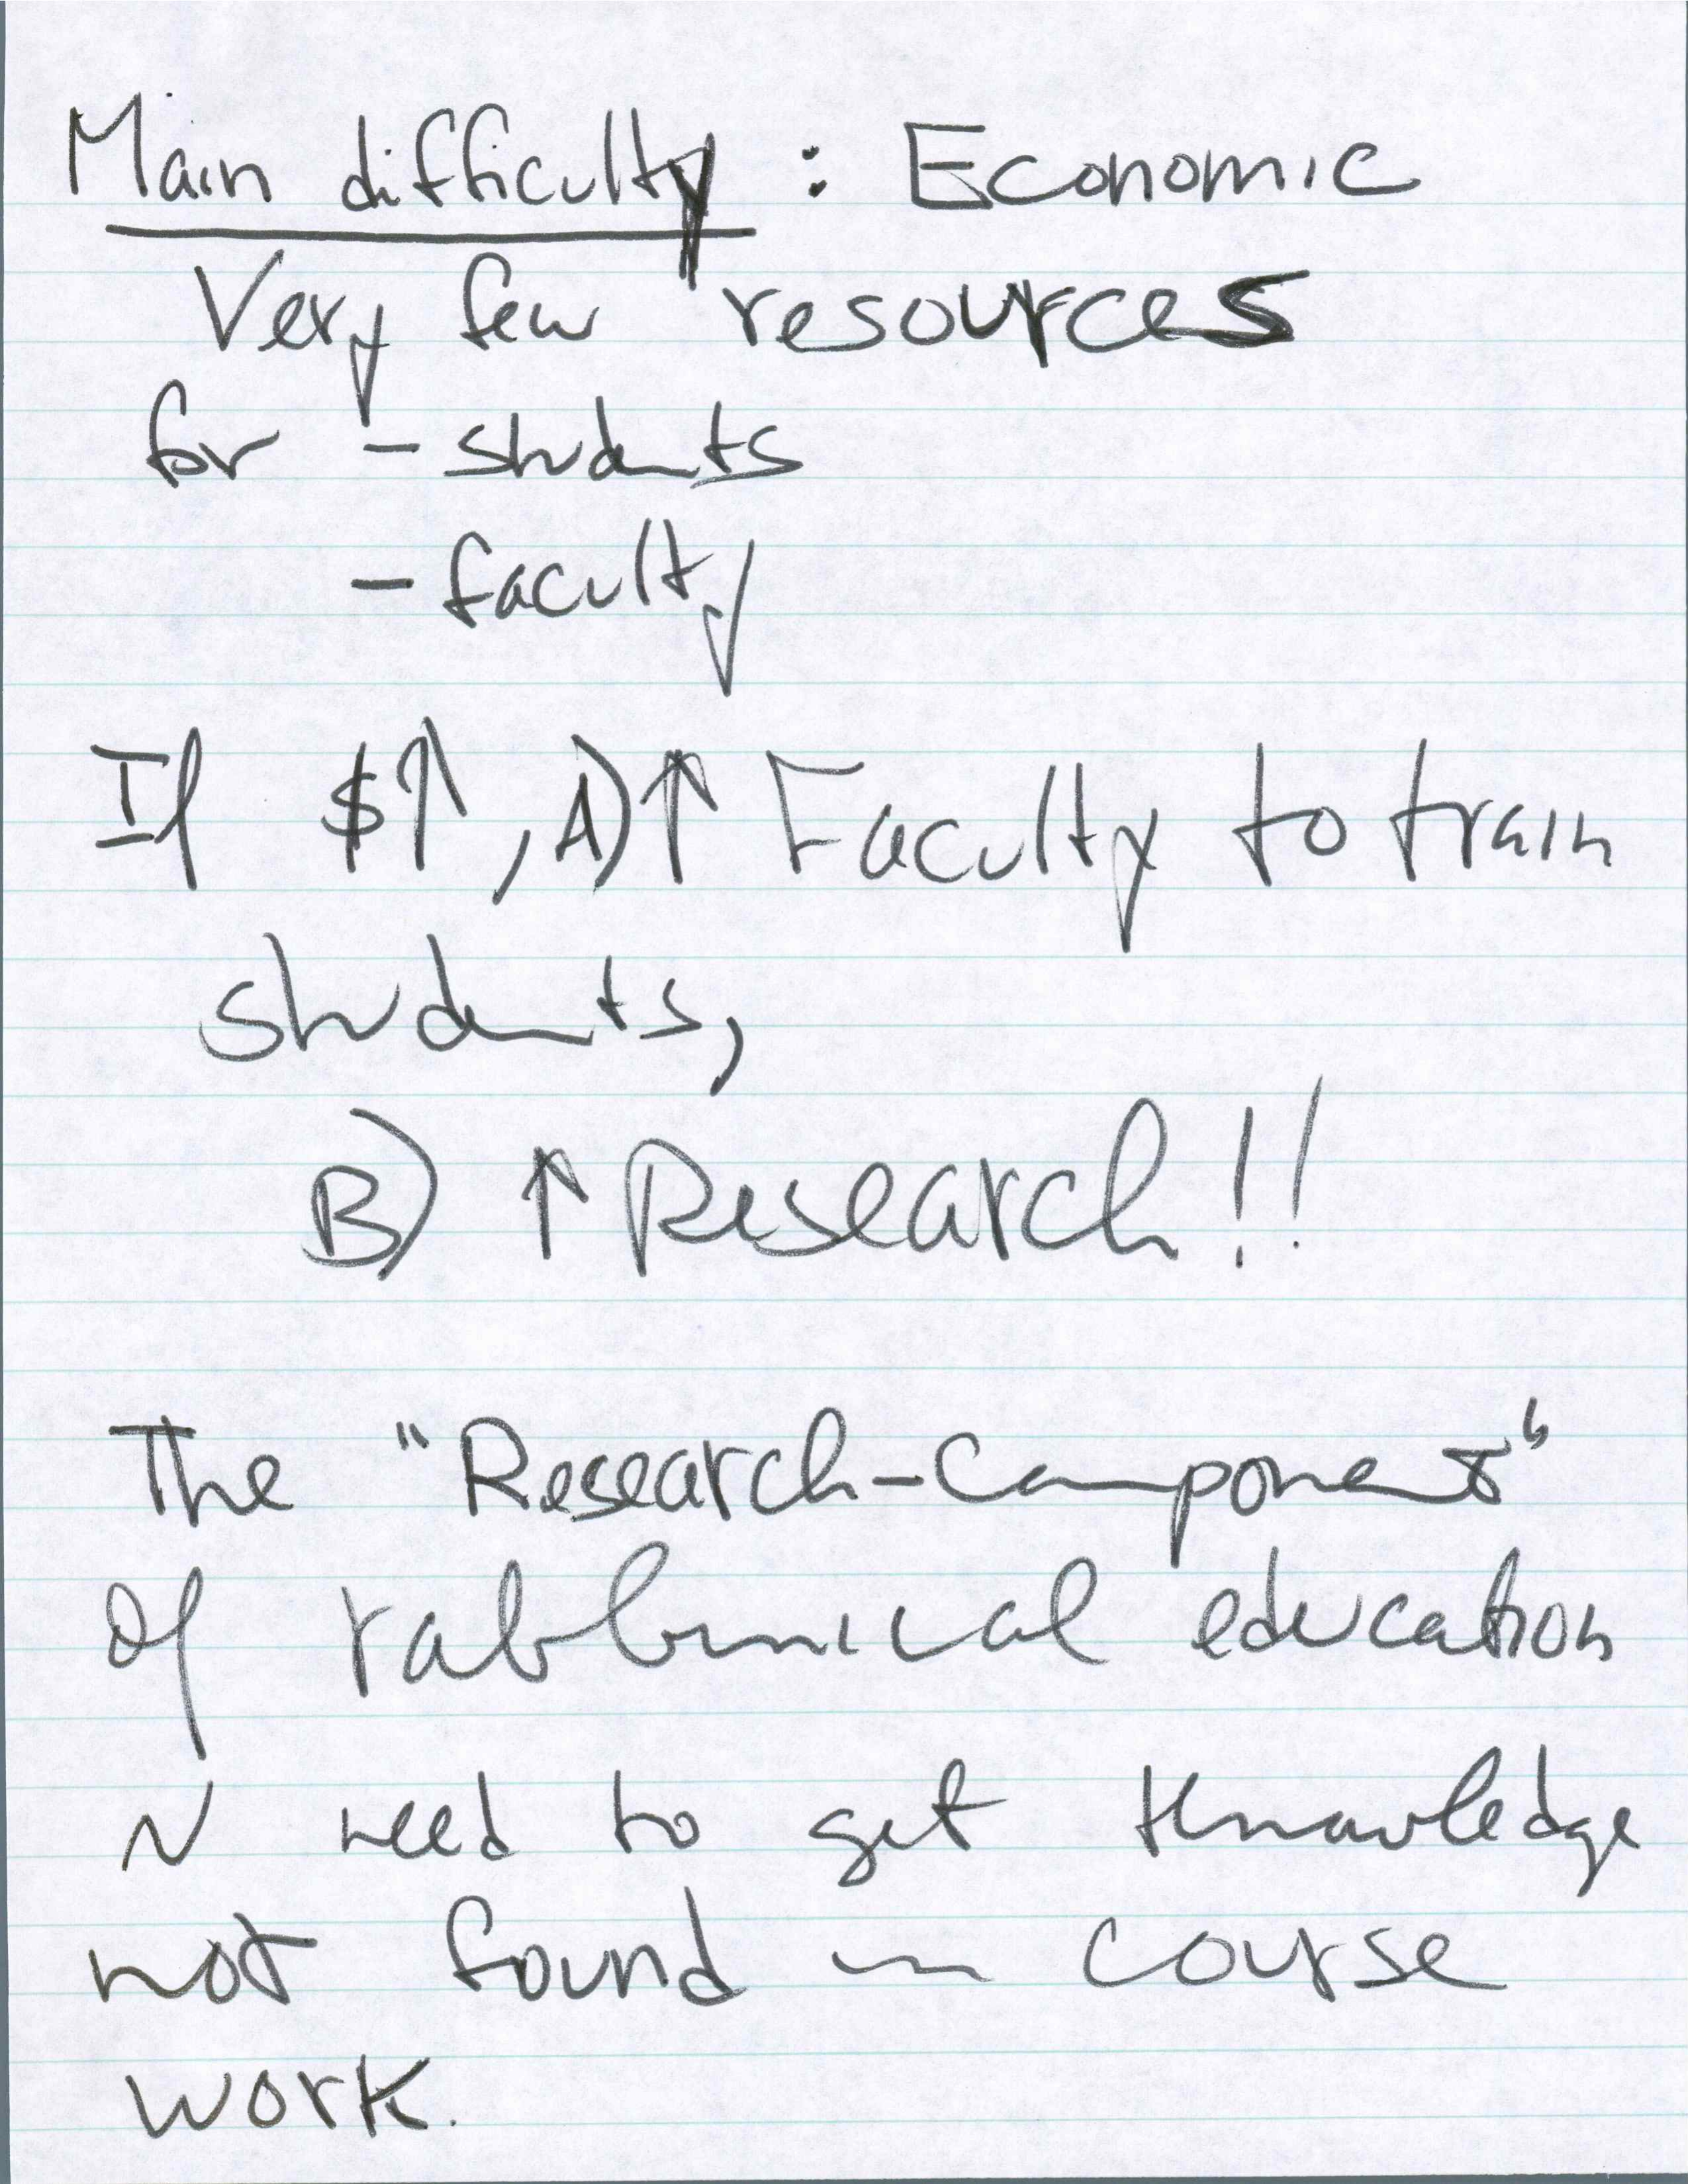 Main difficulty : Economic
Very few resources
for - students
- faculty
If $↑, A)↑ Faculty to train
students,
B) ↑ Research!!
The "Research-Component"
of rabbinical education
~ need to get knowledge
not found in course
work.